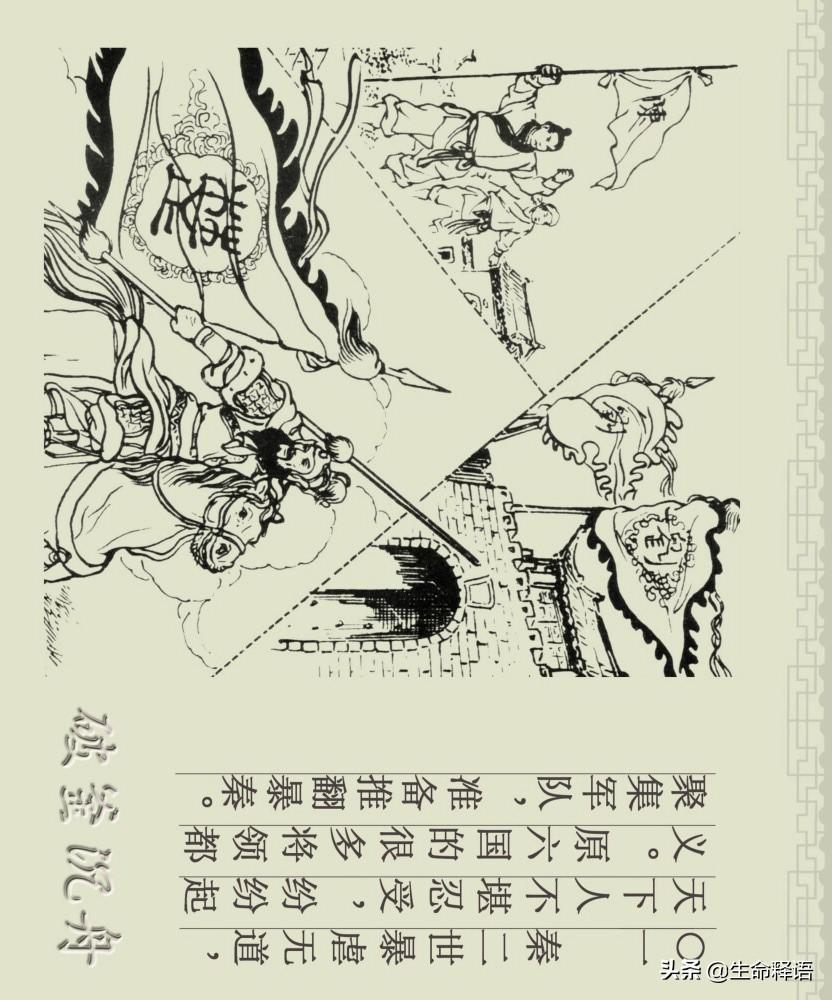 陳
楚
魏
破釜沉舟
〇一 秦二世暴虐无道，
天下人不堪忍受，纷纷起
义。原六国的很多将领都
聚集军队，准备推翻暴秦。
头条 @生命释语